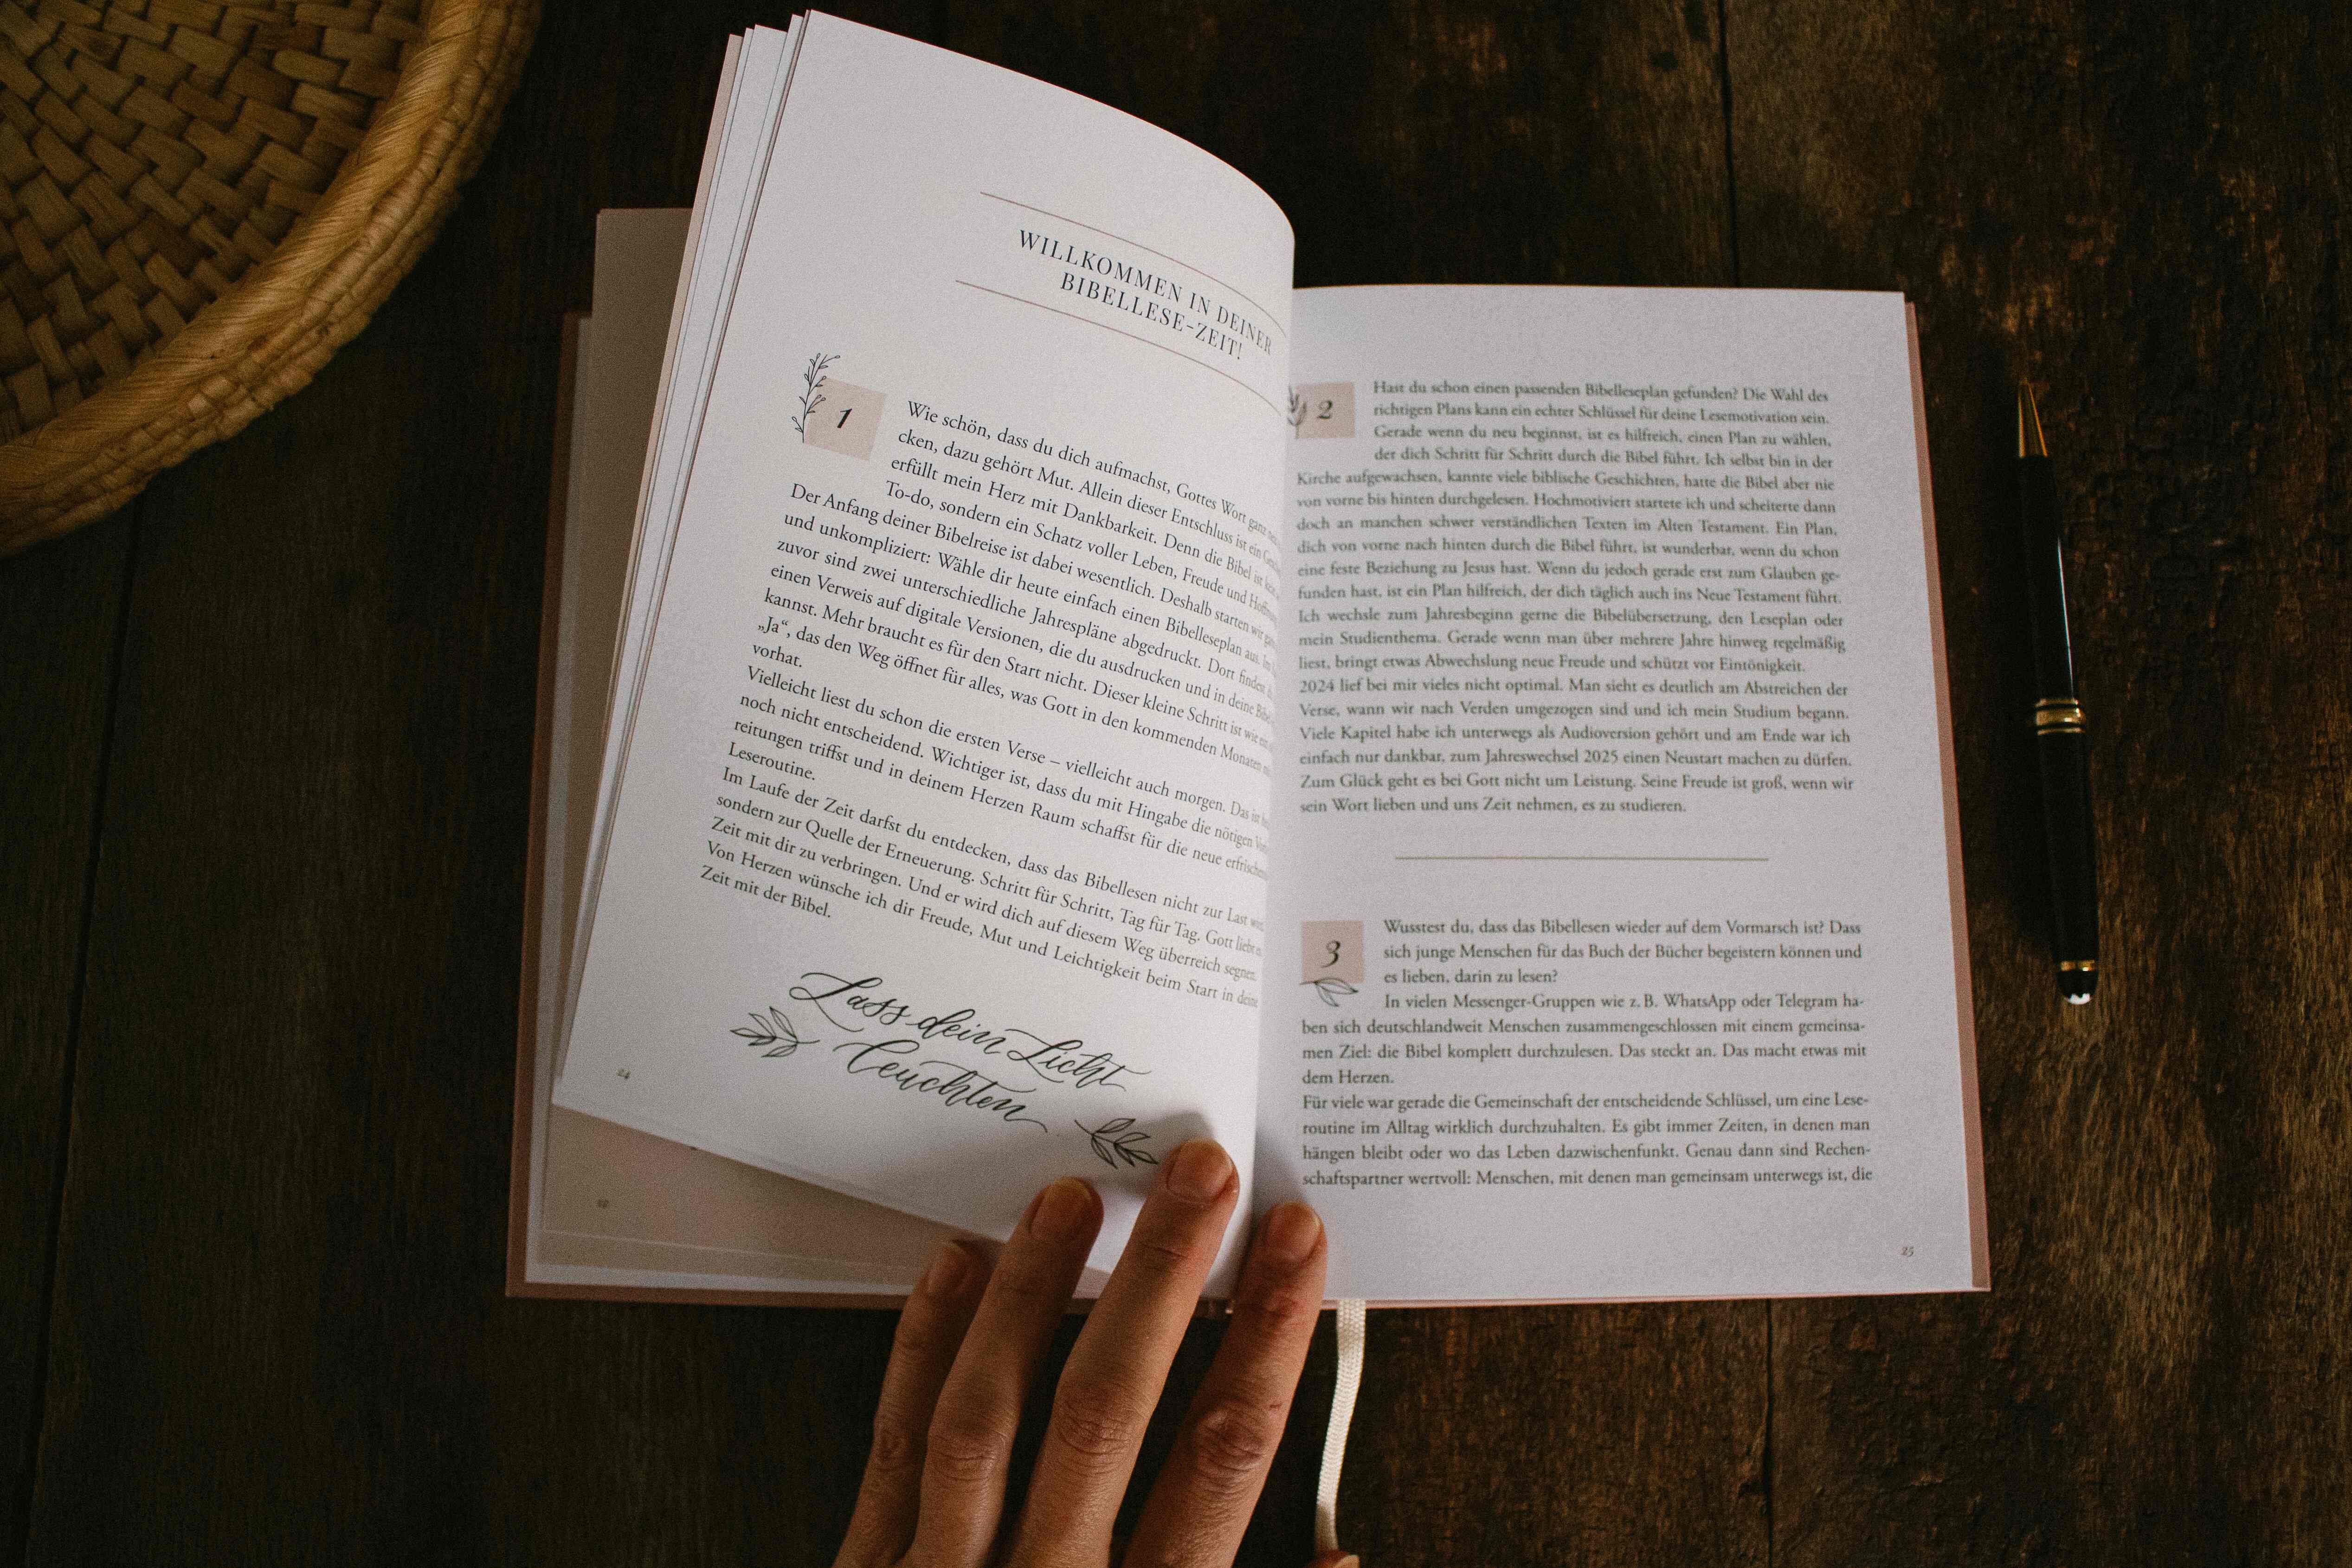 WILLKOMMEN IN DEINER
BIBELLESE-ZEIT!
1
Wie schön, dass du dich aufmachst, Gottes Wort ganz
cken, dazu gehört Mut. Allein dieser Entschluss ist ein
erfüllt mein Herz mit Dankbarkeit. Denn die Bibel ist
To-do, sondern ein Schatz voller Leben, Freude und
Der Anfang deiner Bibelreise ist dabei wesentlich. Deshalb starten wir
und unkompliziert: Wähle dir heute einfach einen Bibelleseplan aus.
zuvor sind zwei unterschiedliche Jahrespläne abgedruckt. Dort findest
einen Verweis auf digitale Versionen, die du ausdrucken und in deine
kannst. Mehr braucht es für den Start nicht. Dieser kleine Schritt ist wie
„Ja“, das den Weg öffnet für alles, was Gott in den kommenden Monaten
vorhat.
Vielleicht liest du schon die ersten Verse – vielleicht auch morgen. Das ist
noch nicht entscheidend. Wichtiger ist, dass du mit Hingabe die nötigen
reitungen triffst und in deinem Herzen Raum schaffst für die neue
Leseroutine.
Im Laufe der Zeit darfst du entdecken, dass das Bibellesen nicht zur Last
sondern zur Quelle der Erneuerung. Schritt für Schritt, Tag für Tag. Gott liebt
Zeit mit dir zu verbringen. Und er wird dich auf diesem Weg überreich segnen.
Von Herzen wünsche ich dir Freude, Mut und Leichtigkeit beim Start in deine
Zeit mit der Bibel.
Lass dein Licht
leuchten
24
2
Hast du schon einen passenden Bibelleseplan gefunden? Die Wahl des
richtigen Plans kann ein echter Schlüssel für deine Lesemotivation sein.
Gerade wenn du neu beginnst, ist es hilfreich, einen Plan zu wählen,
der dich Schritt für Schritt durch die Bibel führt. Ich selbst bin in der
Kirche aufgewachsen, kannte viele biblische Geschichten, hatte die Bibel aber nie
von vorne bis hinten durchgelesen. Hochmotiviert startete ich und scheiterte dann
doch an manchen schwer verständlichen Texten im Alten Testament. Ein Plan,
dich von vorne nach hinten durch die Bibel führt, ist wunderbar, wenn du schon
eine feste Beziehung zu Jesus hast. Wenn du jedoch gerade erst zum Glauben ge-
funden hast, ist ein Plan hilfreich, der dich täglich auch ins Neue Testament führt.
Ich wechsle zum Jahresbeginn gerne die Bibelübersetzung, den Leseplan oder
mein Studienthema. Gerade wenn man über mehrere Jahre hinweg regelmäßig
liest, bringt etwas Abwechslung neue Freude und schützt vor Eintönigkeit.
2024 lief bei mir vieles nicht optimal. Man sieht es deutlich am Abstreichen der
Verse, wann wir nach Verden umgezogen sind und ich mein Studium begann.
Viele Kapitel habe ich unterwegs als Audioversion gehört und am Ende war ich
einfach nur dankbar, zum Jahreswechsel 2025 einen Neustart machen zu dürfen.
Zum Glück geht es bei Gott nicht um Leistung. Seine Freude ist groß, wenn wir
sein Wort lieben und uns Zeit nehmen, es zu studieren.
3
Wusstest du, dass das Bibellesen wieder auf dem Vormarsch ist? Dass
sich junge Menschen für das Buch der Bücher begeistern können und
es lieben, darin zu lesen?
In vielen Messenger-Gruppen wie z. B. WhatsApp oder Telegram ha-
ben sich deutschlandweit Menschen zusammengeschlossen mit einem gemeinsa-
men Ziel: die Bibel komplett durchzulesen. Das steckt an. Das macht etwas mit
dem Herzen.
Für viele war gerade die Gemeinschaft der entscheidende Schlüssel, um eine Lese-
routine im Alltag wirklich durchzuhalten. Es gibt immer Zeiten, in denen man
hängen bleibt oder wo das Leben dazwischenfunkt. Genau dann sind Rechen-
schaftspartner wertvoll: Menschen, mit denen man gemeinsam unterwegs ist, die
25